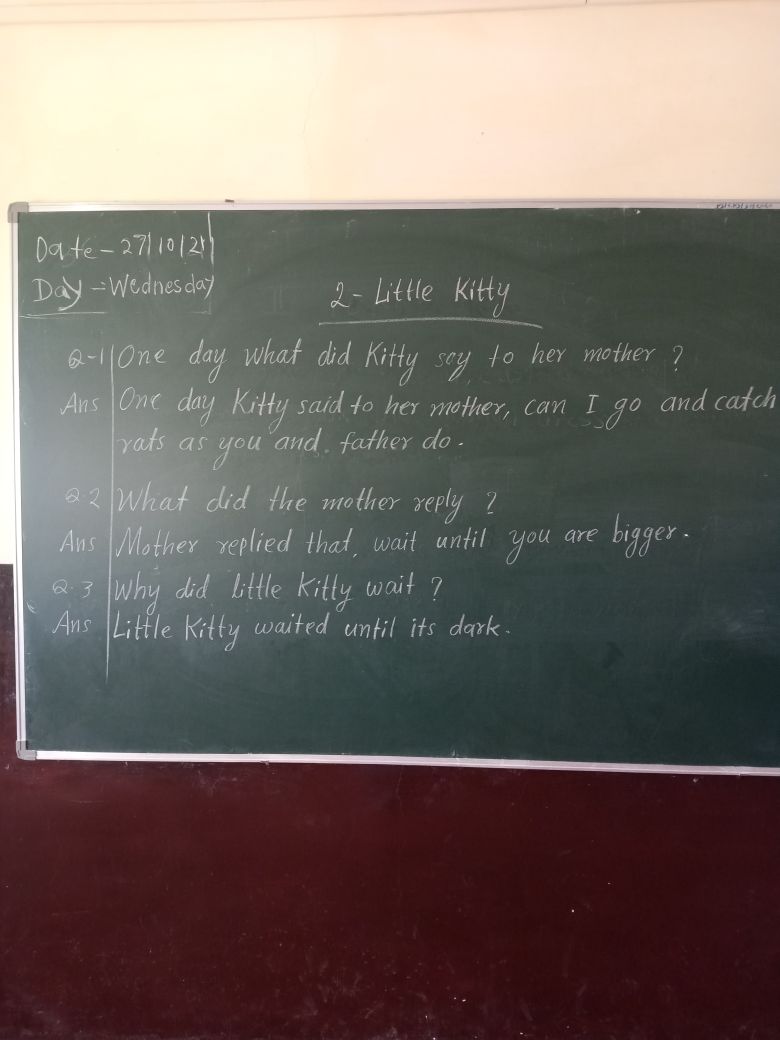 Date - 27/10/21
Day - Wednesday
2 - Little Kitty
Q-1 One day what did Kitty say to her mother ?
Ans One day Kitty said to her mother, can I go and catch
rats as you and father do.
Q.2 What did the mother reply ?
Ans Mother replied that, wait until you are bigger.
Q.3 Why did little Kitty wait ?
Ans Little Kitty waited until its dark.